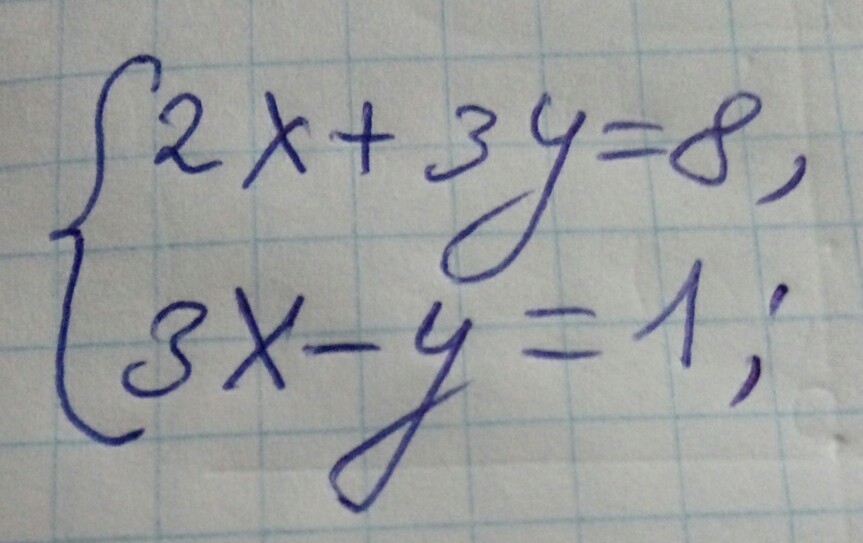 2x+3y=8,
3x-y=1;